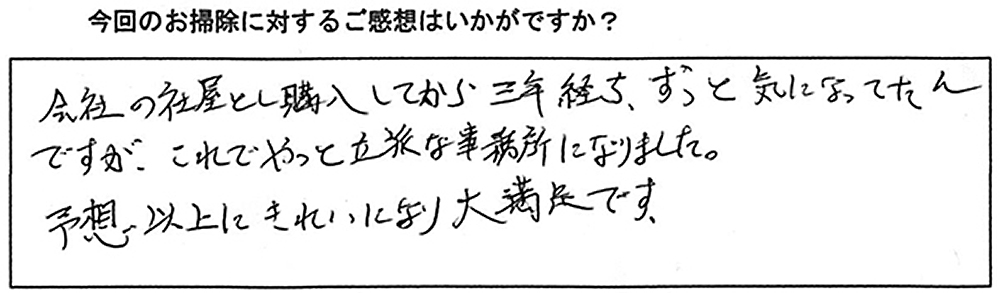 今回のお掃除に対するご感想はいかがですか？
会社の社屋とし購入してから三年経ち、ずっと気になってたん
ですが、これでやっと立派な事務所になりました。
予想以上にきれいになり大満足です、